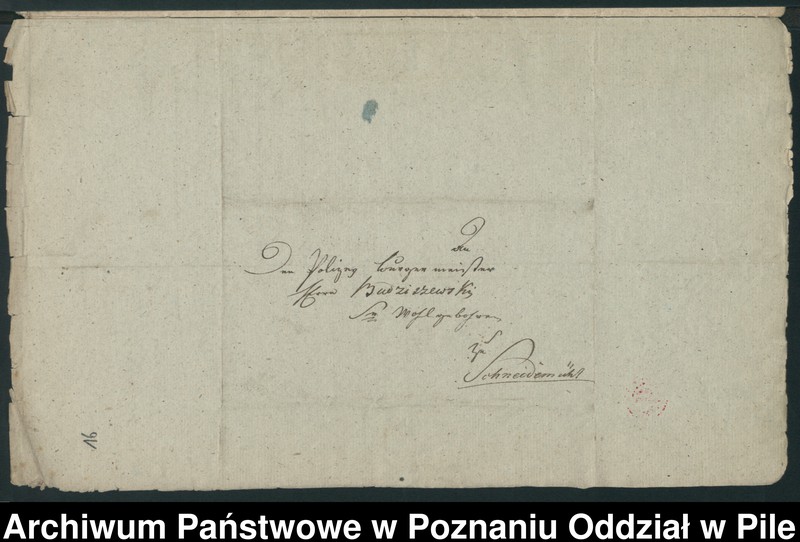 An
Den Polizey burgermeister
Herrn Budziszewski
Wohlgebohren
zu
Schneidemühl
16
Archiwum Państwowe w Poznaniu Oddział w Pile